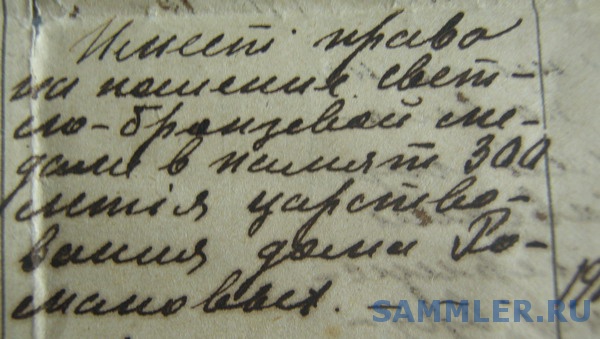 Имеетъ право
на ношение свет-
ло-бронзевой ме-
дали в памят 300
летія царство-
вания дома Ро-
мановых. —
19
SAMMLER.RU